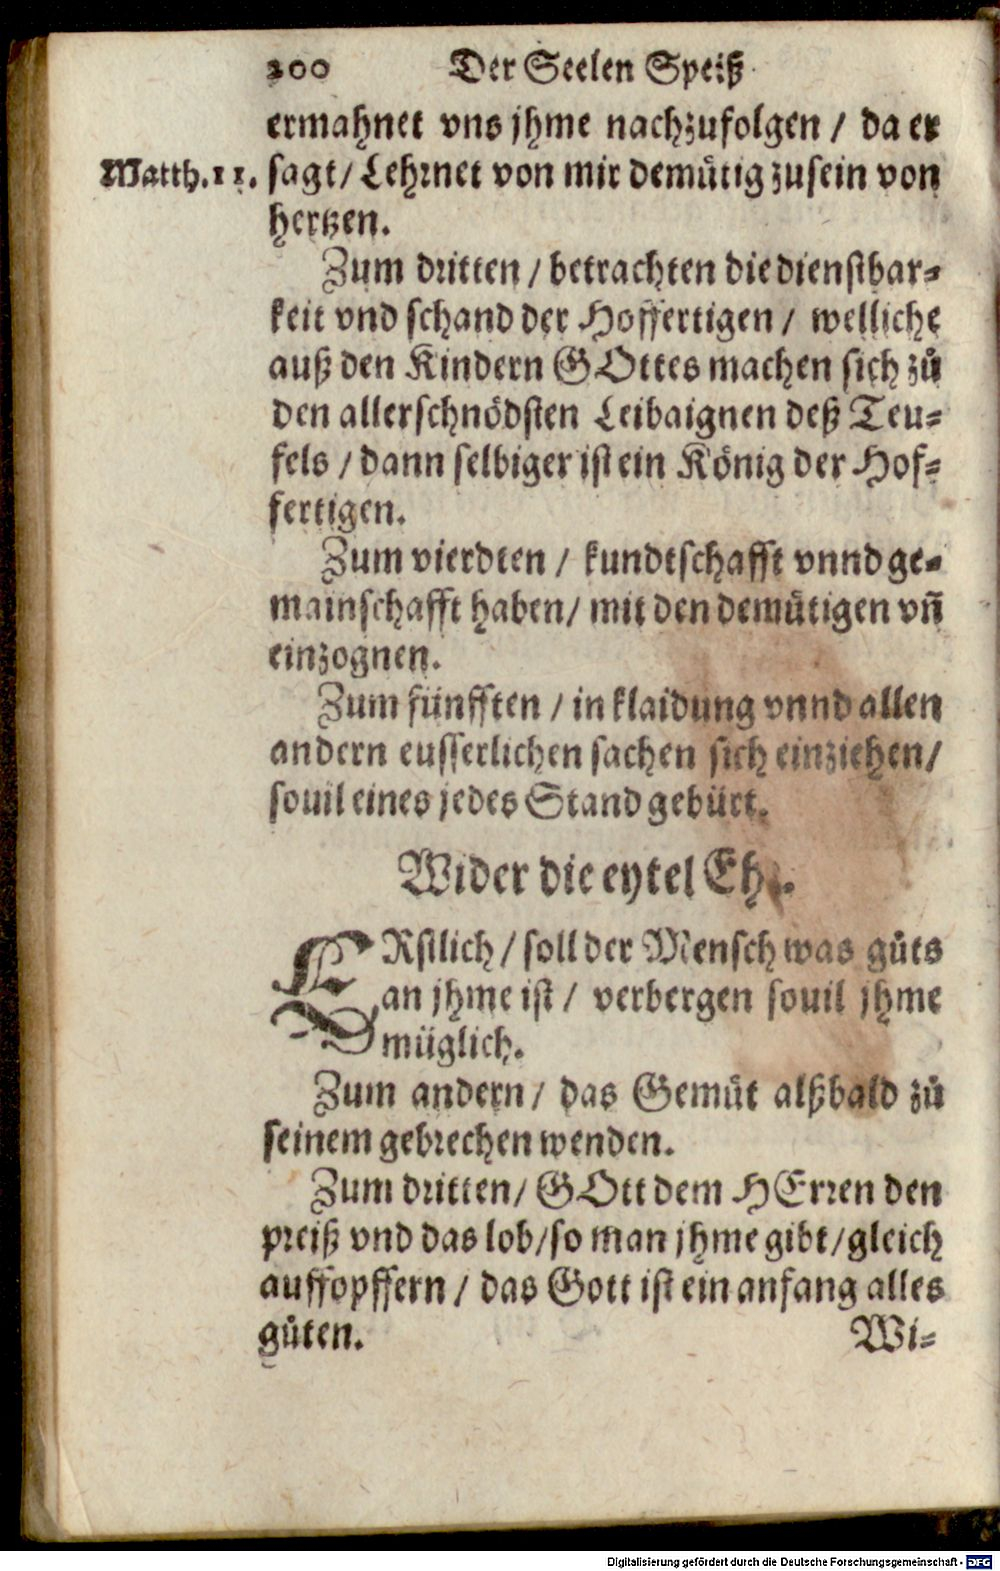 200 Der Seelen Speiß
ermahnet vns jhme nachzufolgen / da er
Matth.11. sagt / Lehrnet von mir demütig zusein von
hertzen.
Zum dritten / betrachten die dienstbar-
keit vnd schand der Hoffertigen / welliche
auß den Kindern GOttes machen sich zů
den allerschnödsten Leibaignen deß Teu-
fels / dann selbiger ist ein König der Hof-
fertigen.
Zum vierdten / kundtschafft vnnd ge-
mainschafft haben / mit den demütigen vñ
einzognen.
Zum fünfften / in klaidung vnnd allen
andern eusserlichen sachen sich einziehen /
souil eines jedes Stand gebürt.
Wider die eytel
ERstlich / soll der Mensch was gůts
an jhme ist / verbergen souil jhme
müglich.
Zum andern / das Gemůt alßbald zů
seinem gebrechen wenden.
Zum dritten / GOtt dem HErren den
preiß vnd das lob / so man jhme gibt / gleich
auffopffern / das Gott ist ein anfang alles
gůten. Wi-
Digitalisierung gefördert durch die Deutsche Forschungsgemeinschaft - DFG